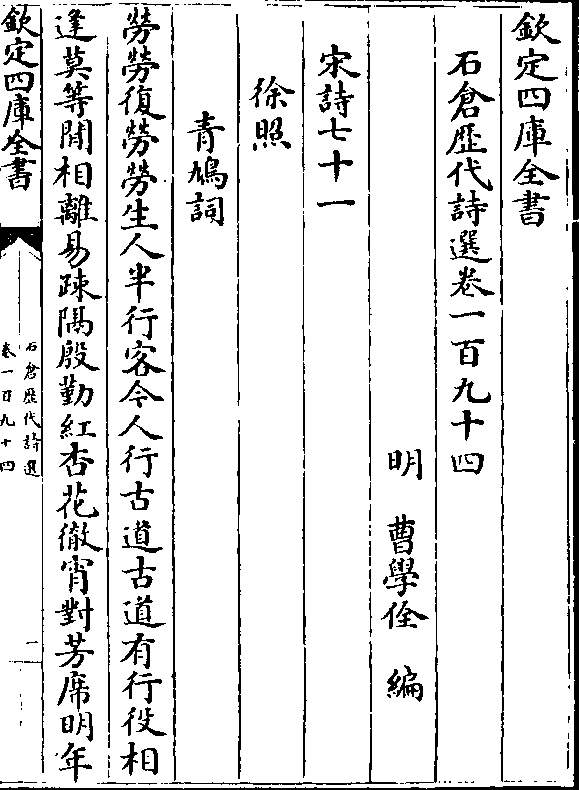 欽定四庫全書
石倉歴代詩選卷一百九十四
明　曹學佺　編
宋詩七十一
徐照
青鳩詞
勞勞復勞勞生人半行客令人行古道古道有行役相
逢莫等閒相離易疎隔殷勤紅杏花徹宵對芳席明年
欽定四庫全書
石倉歴代詩選
卷一百九十四